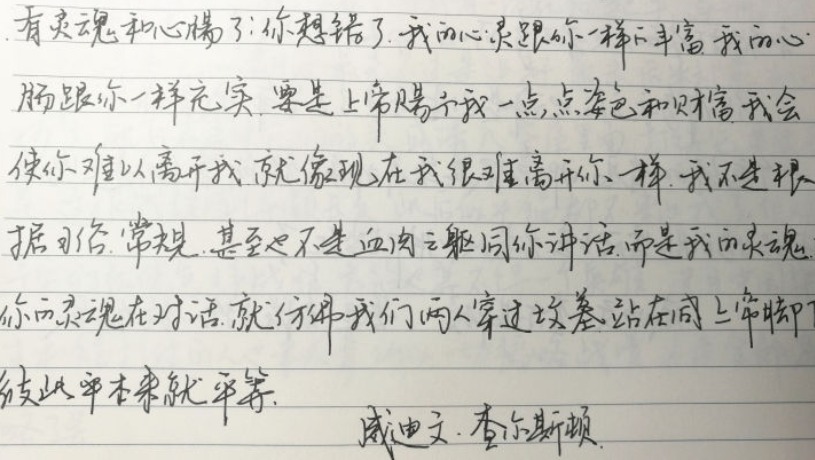 有灵魂和心肠了:你想错了.我的心灵跟你一样的丰富.我的心
肠跟你一样充实.要是上帝赐予我一点点姿色和财富.我会
使你难以离开我.就像现在我很难离开你一样.我不是根
据习俗.常规.甚至也不是血肉之躯同你讲话.而是我的灵魂.
你的灵魂在对话.就仿佛我们两人穿过坟墓.站在同上帝脚下
彼此平本来就平等.
威迪文.查尔斯顿.